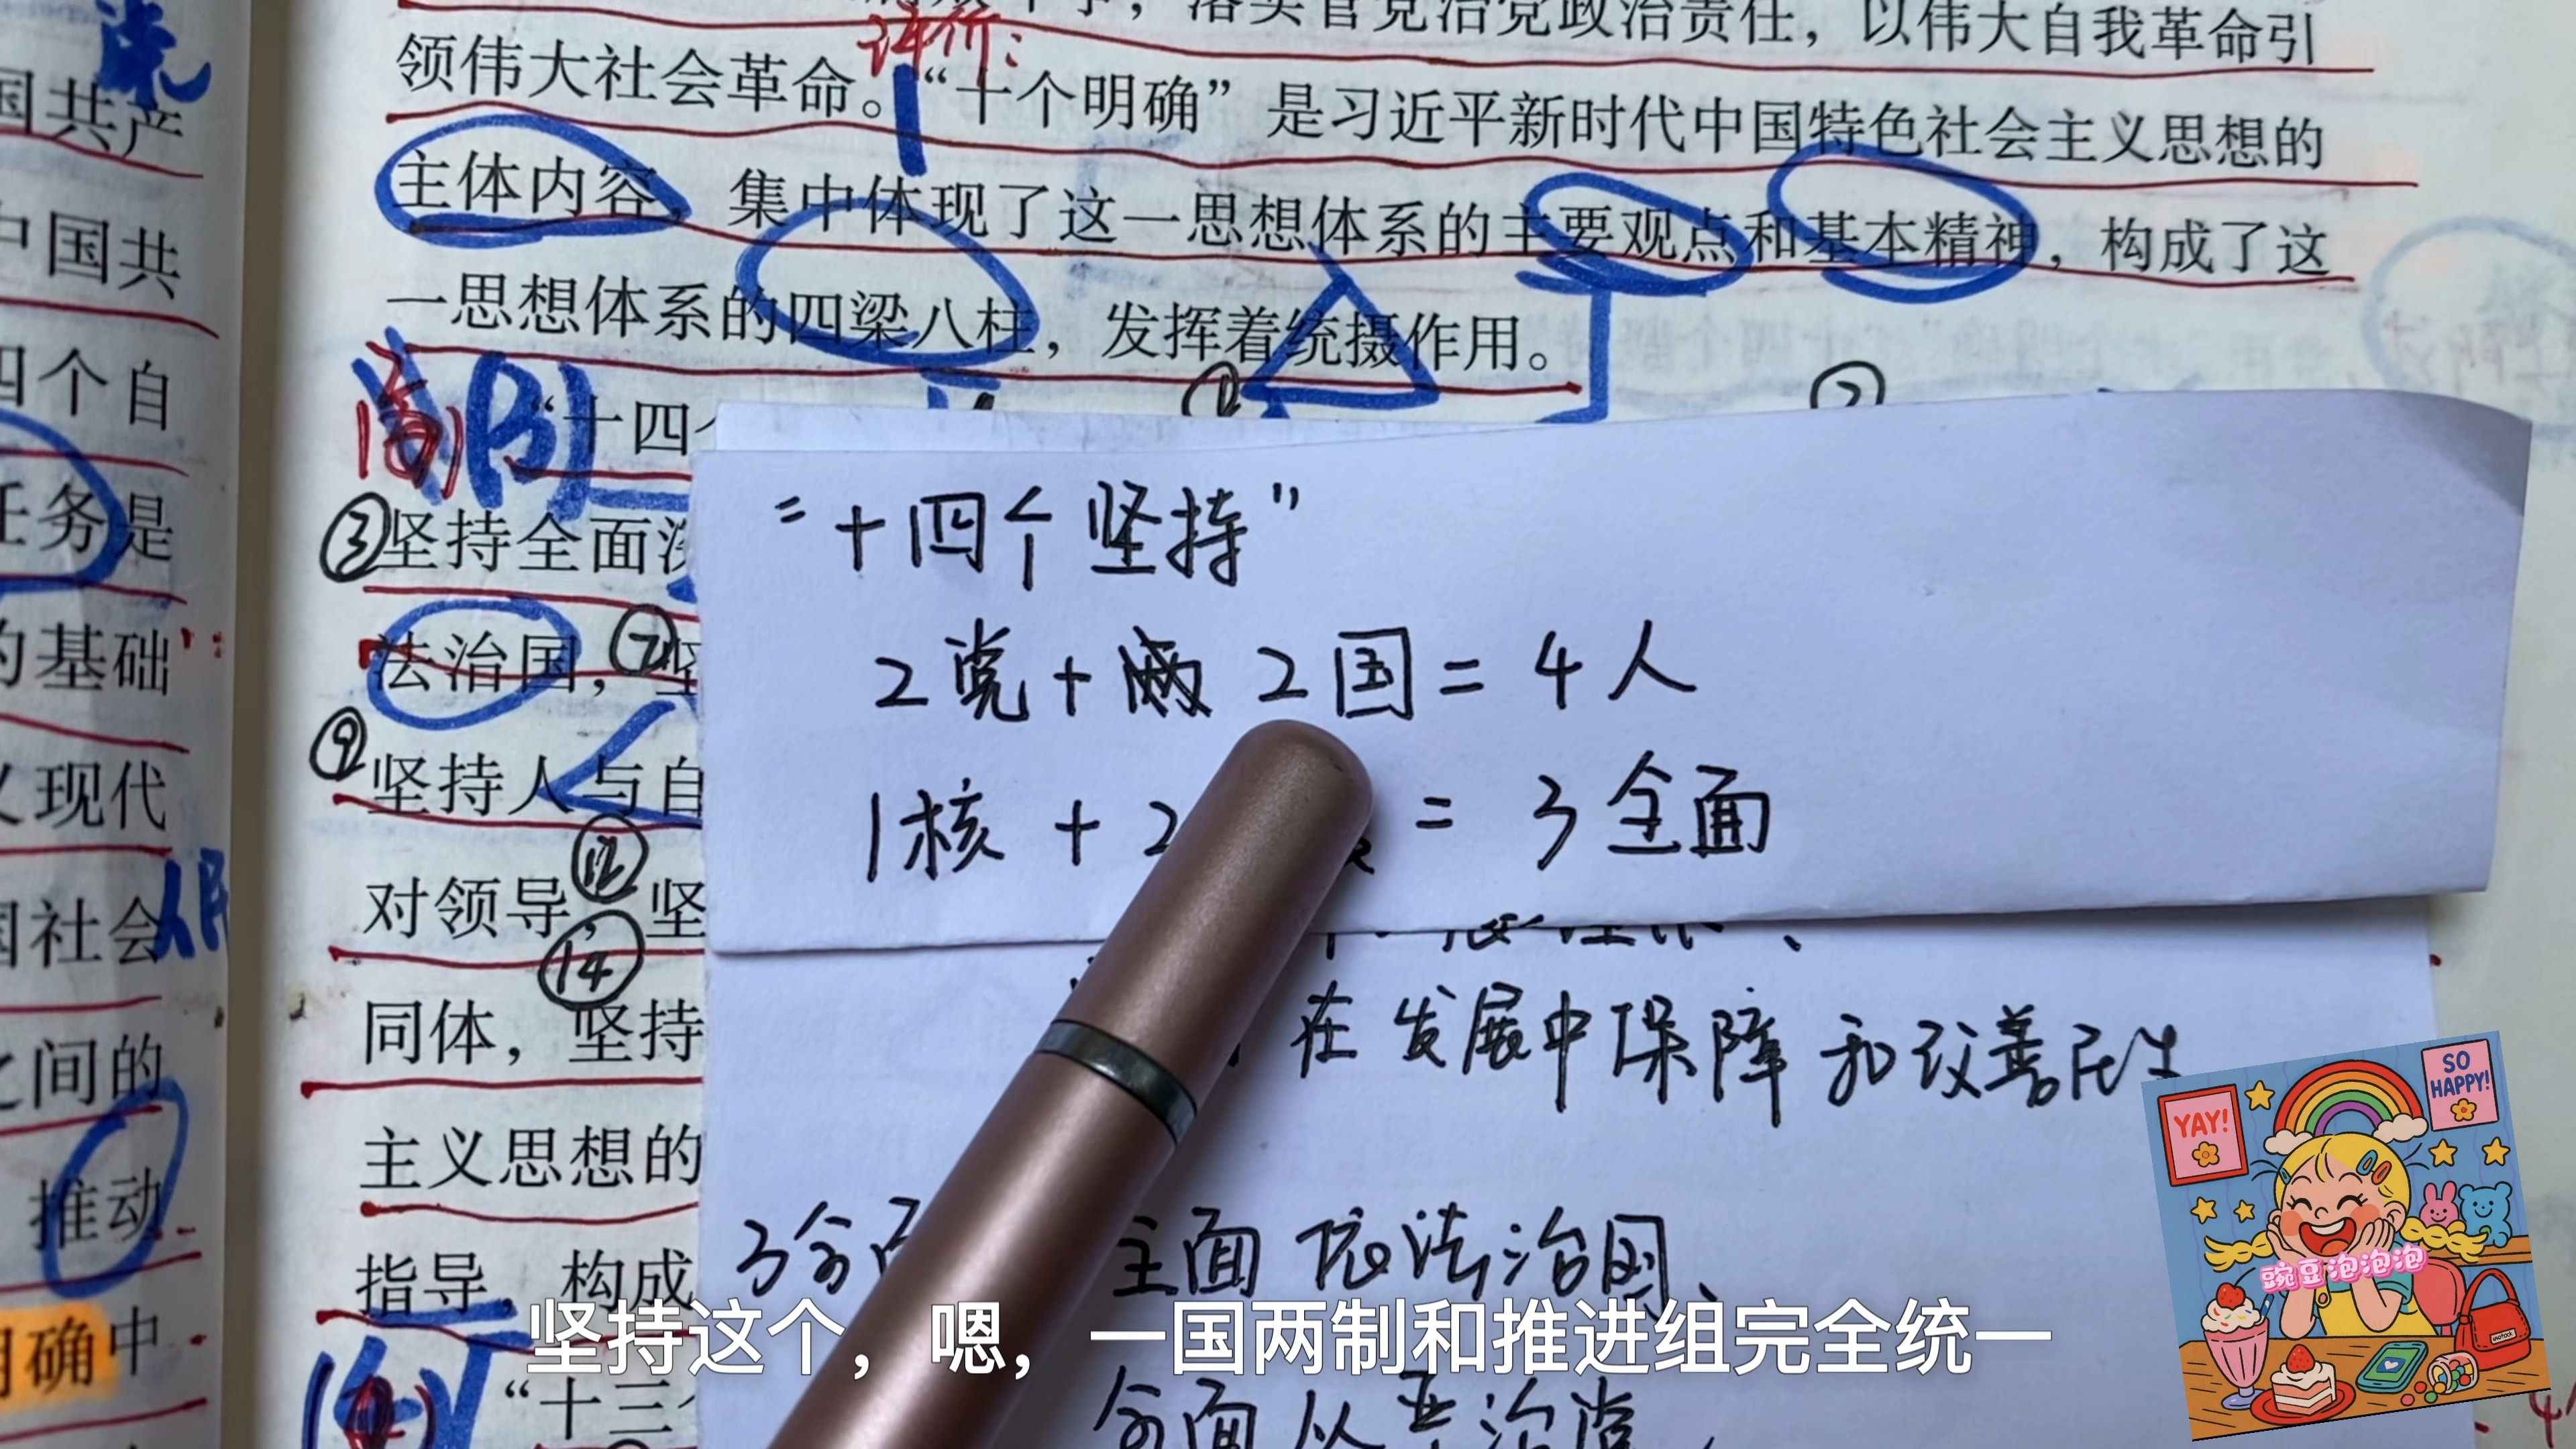 国共产
中国共
四个自
任务是
的基础
义现代
国社会
人民
之间的
推动
明确中
落实管党治党政治责任，以伟大自我革命引
评价：
领伟大社会革命。“十个明确”是习近平新时代中国特色社会主义思想的
主体内容，集中体现了这一思想体系的主要观点和基本精神，构成了这
一思想体系的四梁八柱，发挥着统摄作用。
① ②
“十四个
③坚持全面深
法治国，⑦坚
⑨坚持人与自
⑫
对领导，坚
⑭
同体，坚持
主义思想的
指导，构成
“十三个
“十四个坚持”
2党+2国=4人
1核+2 =3全面
在发展中保障和改善民生
3全面 全面依法治国、
全面从严治党、
坚持这个，嗯，一国两制和推进组完全统一
YAY!
SO HAPPY!
豌豆泡泡泡